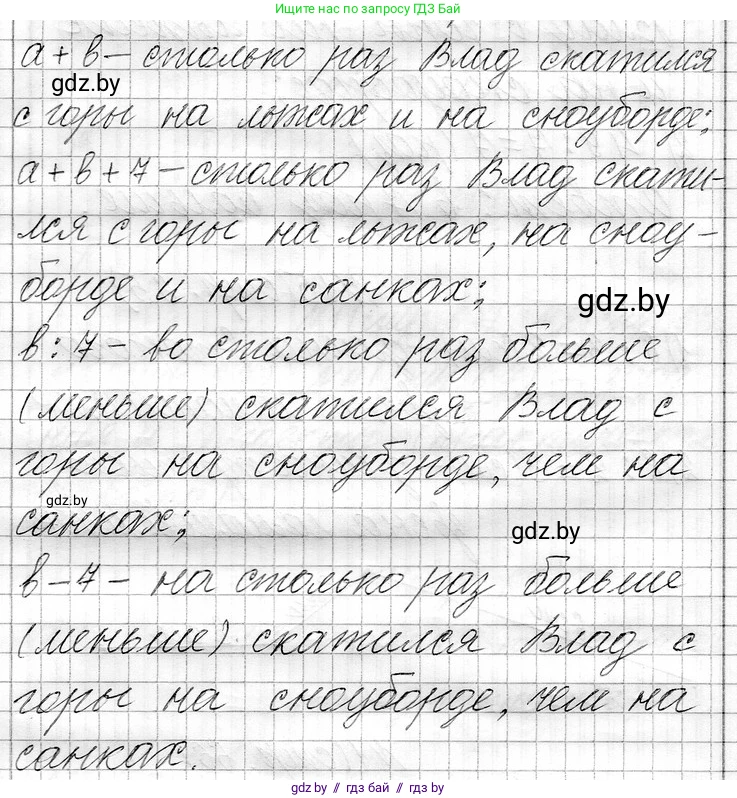 Ищите нас по запросу ГДЗ Бай
a + в — столько раз Влад скатился
gdz.by
с горы на лыжах и на сноуборде;
a + в + 7 — столько раз Влад скати-
лся с горы на лыжах, на сноу-
борде и на санках;
gdz.by
в : 7 — во столько раз больше
(меньше) скатился Влад с
горы на сноуборде, чем на
gdz.by
санках;
gdz.by
в − 7 — на столько раз больше
(меньше) скатился Влад с
горы на сноуборде, чем на
санках.
gdz.by // гдз бай // гдз by